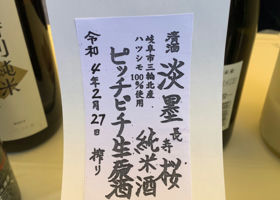 清酒
淡墨桜
長寿
純米酒
岐阜市三輪北産
ハツシモ100%使用
ピッチピチ生原酒
令和4年2月27日 搾り
純米